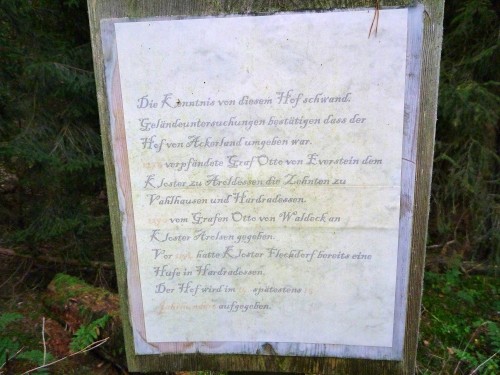 Die Kenntnis von diesem Hof schwand.
Geländeuntersuchungen bestätigen dass der
Hof von Ackerland umgeben war.
verpfändete Graf Otto von Everstein dem
Kloster zu Aroldessen die Zehnten zu
Vahlhausen und Hardradessen.
vom Grafen Otto von Waldeck an
Kloster Arolsen gegeben.
Vor hatte Kloster Flechdorf bereits eine
Hufe in Hardradessen.
Der Hof wird im spätestens
aufgegeben.